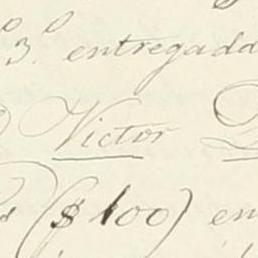 3.º entregadd
Victor
($100) en